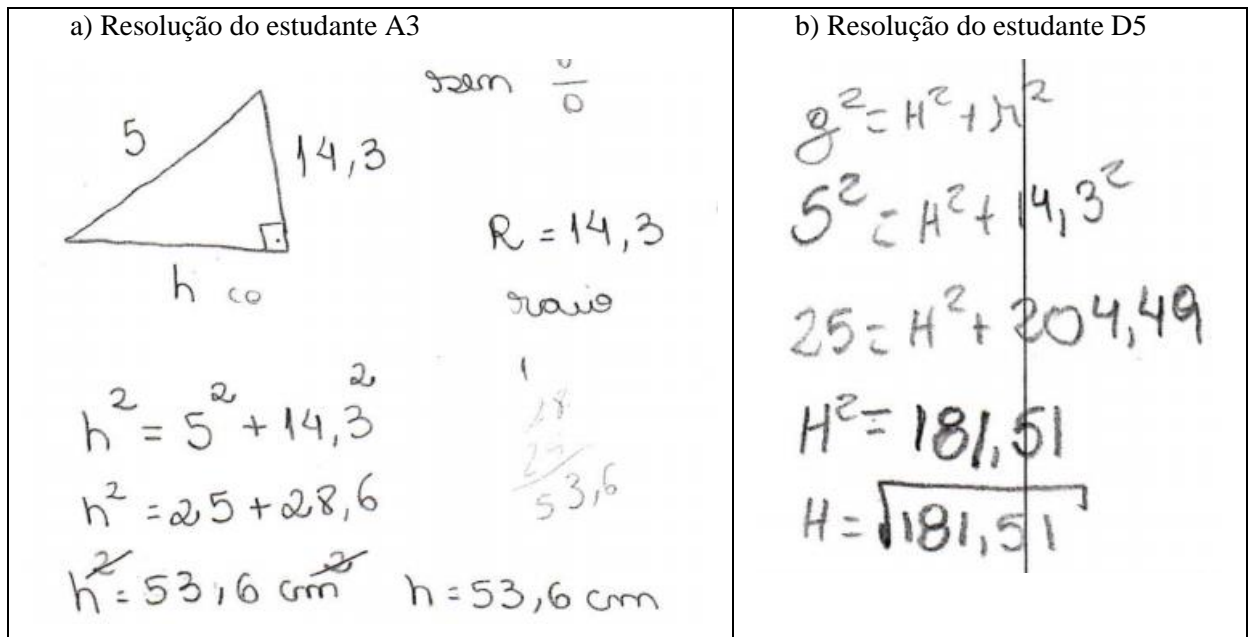 a) Resolução do estudante A3
sem 0/0
5
14,3
R = 14,3
h co
raio
h² = 5² + 14,3²
h² = 25 + 28,6
53,6
h² = 53,6 cm² h = 53,6 cm
b) Resolução do estudante D5
g² = H² + r²
5² = H² + 14,3²
25 = H² + 204,49
H² = 181,51
H = √181,51